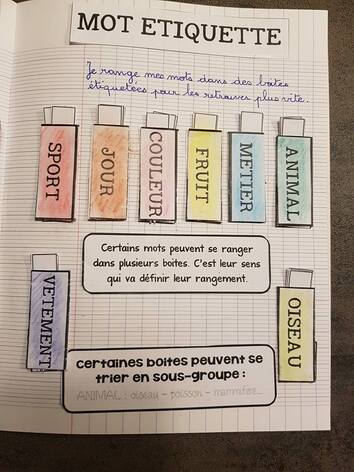 MOT ETIQUETTE
Je range mes mots dans des boîtes
étiquetées pour les retrouver plus vite.
SPORT
JOUR
COULEUR
FRUIT
METIER
ANIMAL
Certains mots peuvent se ranger
dans plusieurs boites. C'est leur sens
qui va définir leur rangement.
VETEMENT
OISEAU
Certaines boites peuvent se
trier en sous-groupe :
ANIMAL : oiseau - poisson - mammifère...